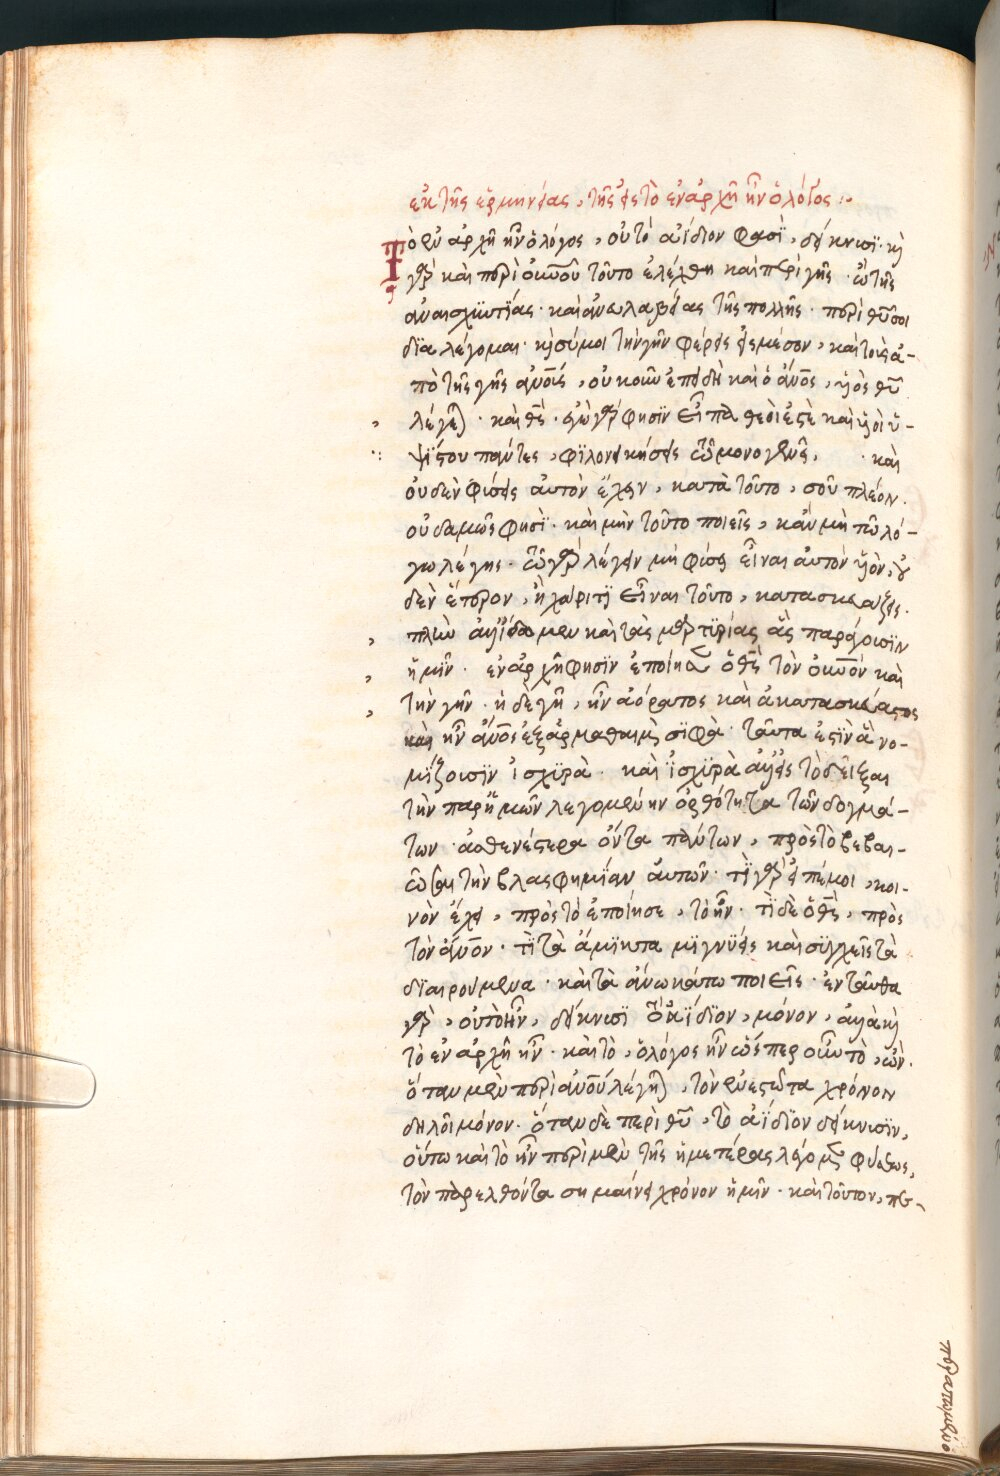 ἐκ τῆς ἑρμηνείας, τῆς εἰς τὸ ἐν ἀρχῇ ἦν ὁ λόγος :~
Τὸ ἐν ἀρχῇ ἦν ὁ λόγος, οὐ τὸ ἀΐδιον φασῒ, δείκνυσϊ· καὶ
γὰρ καὶ περὶ οὐνοῦ τοῦτο ἐλέχθη καὶ περὶ γῆς· ὢ τῆς
ἀναισχυντΐας· καὶ ἀνευλαβείας τῆς πολλῆς· περὶ θῦ σοι
δϊαλέγομαι· καὶ σύ μοι τὴν γῆν φέρεις εἰς μέσον, καὶ τοὺς ἀ-
πὸ τῆς γῆς ἀνοῦς, οὐκοῦν ἐπειδὴ καὶ ὁ ἄνος, υἱὸς θῦ
λέγεται· καὶ θς· ἐγὼ γάρ φησϊν εἶπα θεοὶ ἐστὲ καὶ υἱοὶ ὑ-
ψΐστου πάντες, φϊλονεικήσεις τῷ μονογενεῖ, · καὶ
οὐδὲν φήσεις αὐτὸν ἔχειν, κατὰ τοῦτο, σοῦ πλέον.
οὐδαμῶς φησὶ· καὶ μὴν τοῦτο ποιεῖς, κἂν μὴ τῷ λό-
γω λέγης· τῷ γὰρ λέγειν μὴ φύσει εἶναι αὐτὸν υἱὸν, οὐ
δὲν ἕτερον, ἢ χάριτϊ εἶναι τοῦτο, κατασκευάζεις.
πλὴν ἀλλ' ἴδωμεν καὶ τὰς μαρτϋρίας ἃς παράγουσϊν
ἡμῖν· ἐν ἀρχῇ φησϊν ἐποίησεν ὁ θς τὸν οὐνον καὶ
τὴν γῆν· ἡ δὲ γῆ, ἦν ἀόρατος καὶ ἀκατασκεύαστος
καὶ ἦν ἄνος ἐξ ἀρμαθαὶμ σϊφὰ· ταῦτα ἐστὶν ἃ νο-
μΐζουσϊν ἰσχϋρὰ· καὶ ἰσχϋρὰ ἀλλ' εἰς τὸ δεῖξαι
τὴν παρ' ἡμῶν λεγομένην ὀρθότητα τῶν δογμά-
των· ἀσθενέστερα ὄντα πάντων, πρὸς τὸ βεβαι-
ῶσαι τὴν βλασφημΐαν αὐτῶν· τῒ γὰρ εἰπέ μοι, κοι-
νὸν ἔχει, πρὸς τὸ ἐποίησε, τὸ ἦν· τῒ δὲ ὁ θς, πρὸς
τὸν ἄνον· τῒ τὰ ἄμϊκτα μϊγνϋεις καὶ σϋγχεῖς τὰ
δϊαιρούμενα· καὶ τὰ ἄνω κάτω ποιεῖς· ἐνταῦθα
γὰρ, οὐ τὸ ἦν, δείκνυσϊ τὸ ἀΐδϊον, μόνον, ἀλλὰ καὶ
τὸ ἐν ἀρχῇ ἦν· καὶ τὸ, ὁ λόγος ἦν ὥσπερ οὖν τὸ, ὢν.
ὅταν μὲν περὶ ἀνοῦ λέγηται, τὸν ἐνεστῶτα χρόνον
δηλοῖ μόνον· ὅταν δὲ περὶ θῦ, τὸ ἀΐδϊον δείκνυσϊν,
οὕτω καὶ τὸ ἦν περὶ μὲν τῆς ἡμετέρας λεγόμενον φύσεως,
τὸν παρελθόντα σημαίνει χρόνον ἡμῖν· καὶ τοῦτον, πε-
περασμένον